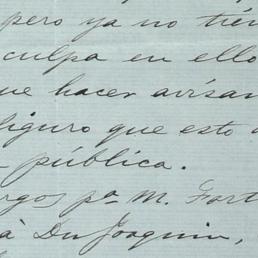 pero ya no tién
culpa en ello
ue hacer avisan
figuro que esto
pública.
rgos pa M. Fort
à Dn Joaquin,